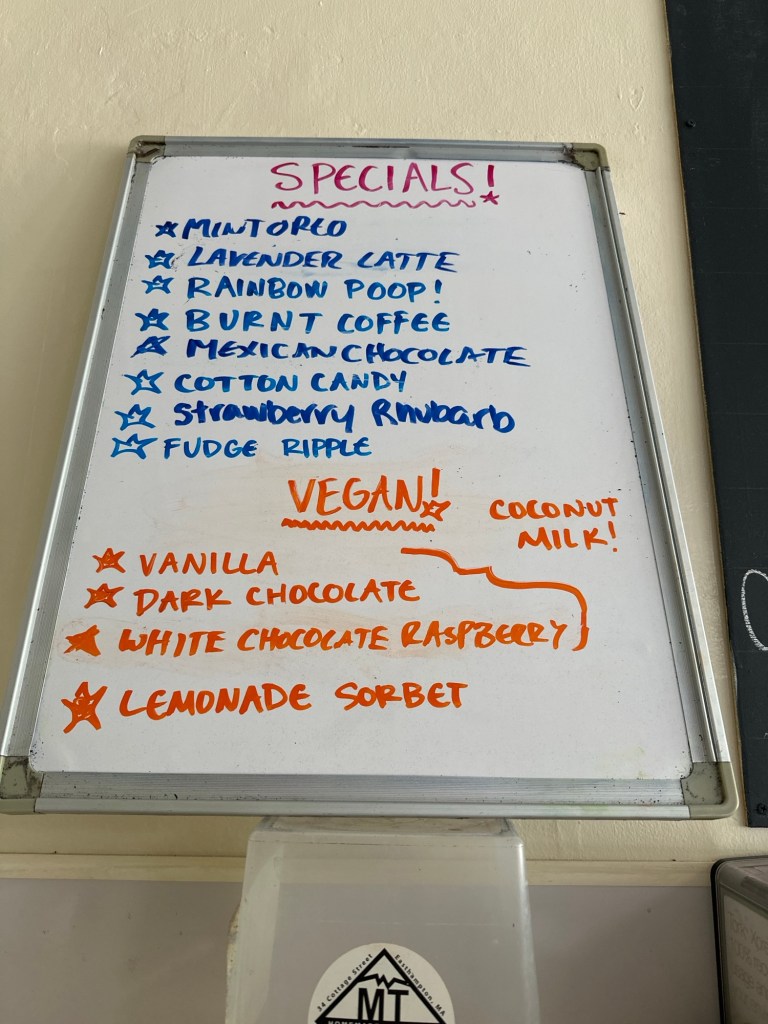 SPECIALS!
MINT OREO
LAVENDER LATTE
RAINBOW POOP!
BURNT COFFEE
MEXICAN CHOCOLATE
COTTON CANDY
Strawberry Rhubarb
FUDGE RIPPLE
VEGAN!
COCONUT
MILK!
VANILLA
DARK CHOCOLATE
WHITE CHOCOLATE RASPBERRY
LEMONADE SORBET
34 Cottage Street
Easthampton, MA
MT